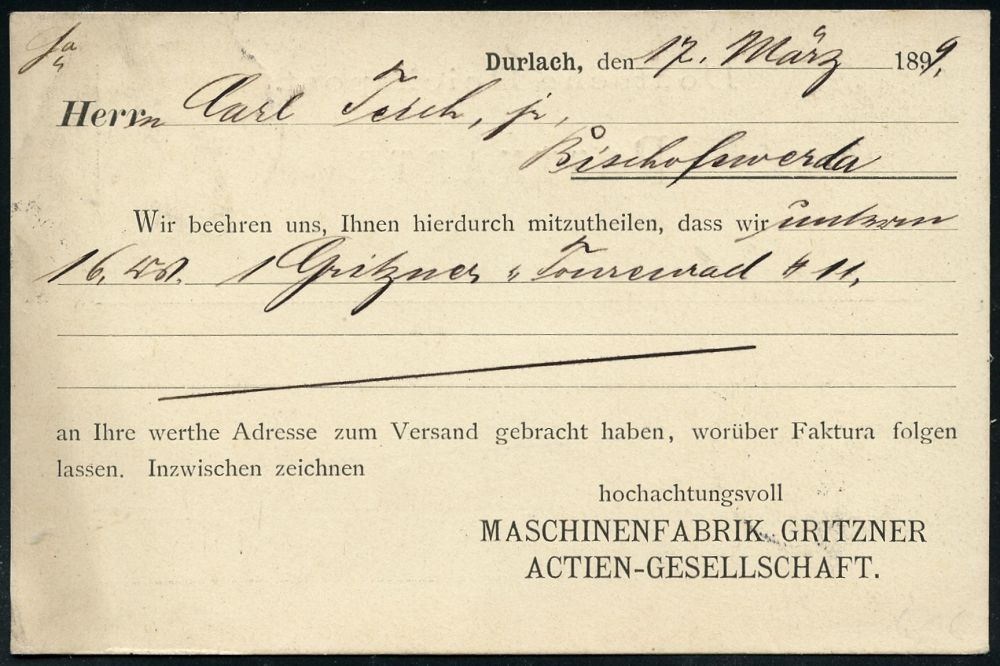 Durlach, den 17. März 1899.
Herrn Carl Tesch, jr,
Bischofswerda
Wir beehren uns, Ihnen hierdurch mitzutheilen, dass wir unterm
16. ds. 1 Gritzner Tourenrad # 11,
an Ihre werthe Adresse zum Versand gebracht haben, worüber Faktura folgen
lassen. Inzwischen zeichnen
hochachtungsvoll
MASCHINENFABRIK GRITZNER
ACTIEN-GESELLSCHAFT.